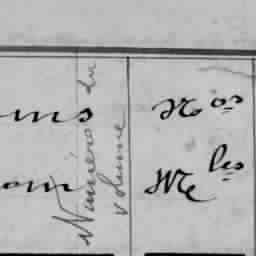 ms Nos
om Mles
Numéro du
volume